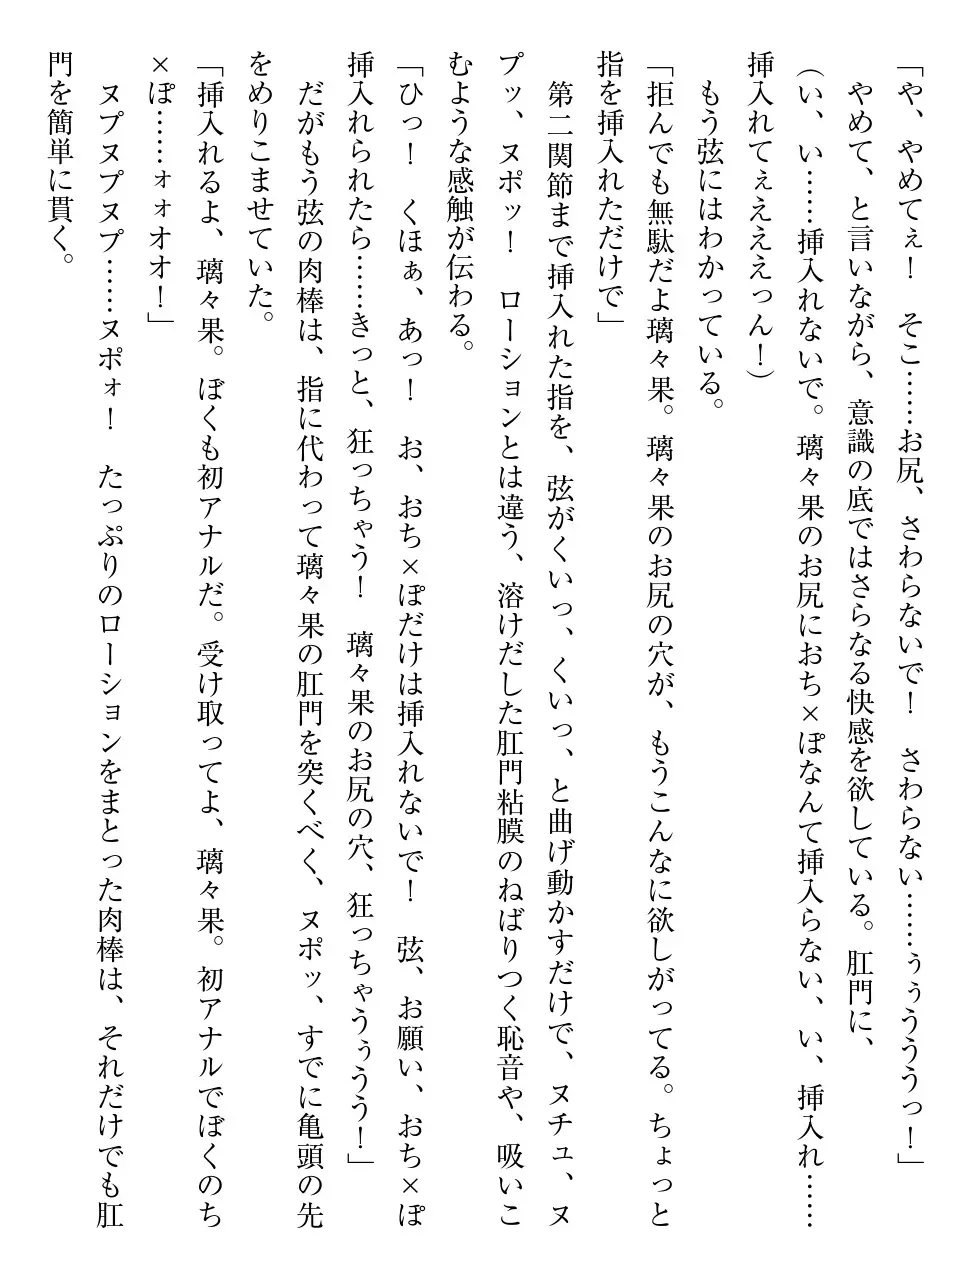 「や、やめてぇ！　そこ……お尻、さわらないで！　さわらない……ぅぅうううっ！」
　やめて、と言いながら、意識の底ではさらなる快感を欲している。肛門に、
（い、い……挿入れないで。璃々果のお尻におち×ぽなんて挿入らない、い、挿入れ……
挿入れてぇえええっん！）
　もう弦にはわかっている。
「拒んでも無駄だよ璃々果。璃々果のお尻の穴が、もうこんなに欲しがってる。ちょっと
指を挿入れただけで」
　第二関節まで挿入れた指を、弦がくいっ、くいっ、と曲げ動かすだけで、ヌチュ、ヌ
プッ、ヌポッ！　ローションとは違う、溶けだした肛門粘膜のねばりつく恥音や、吸いこ
むような感触が伝わる。
「ひっ！　くほぁ、あっ！　お、おち×ぽだけは挿入れないで！　弦、お願い、おち×ぽ
挿入れられたら……きっと、狂っちゃう！　璃々果のお尻の穴、狂っちゃうぅうう！」
　だがもう弦の肉棒は、指に代わって璃々果の肛門を突くべく、ヌポッ、すでに亀頭の先
をめりこませていた。
「挿入れるよ、璃々果。ぼくも初アナルだ。受け取ってよ、璃々果。初アナルでぼくのち
×ぽ……ォォオオ！」
　ヌプヌプヌプ……ヌポォ！　たっぷりのローションをまとった肉棒は、それだけでも肛
門を簡単に貫く。